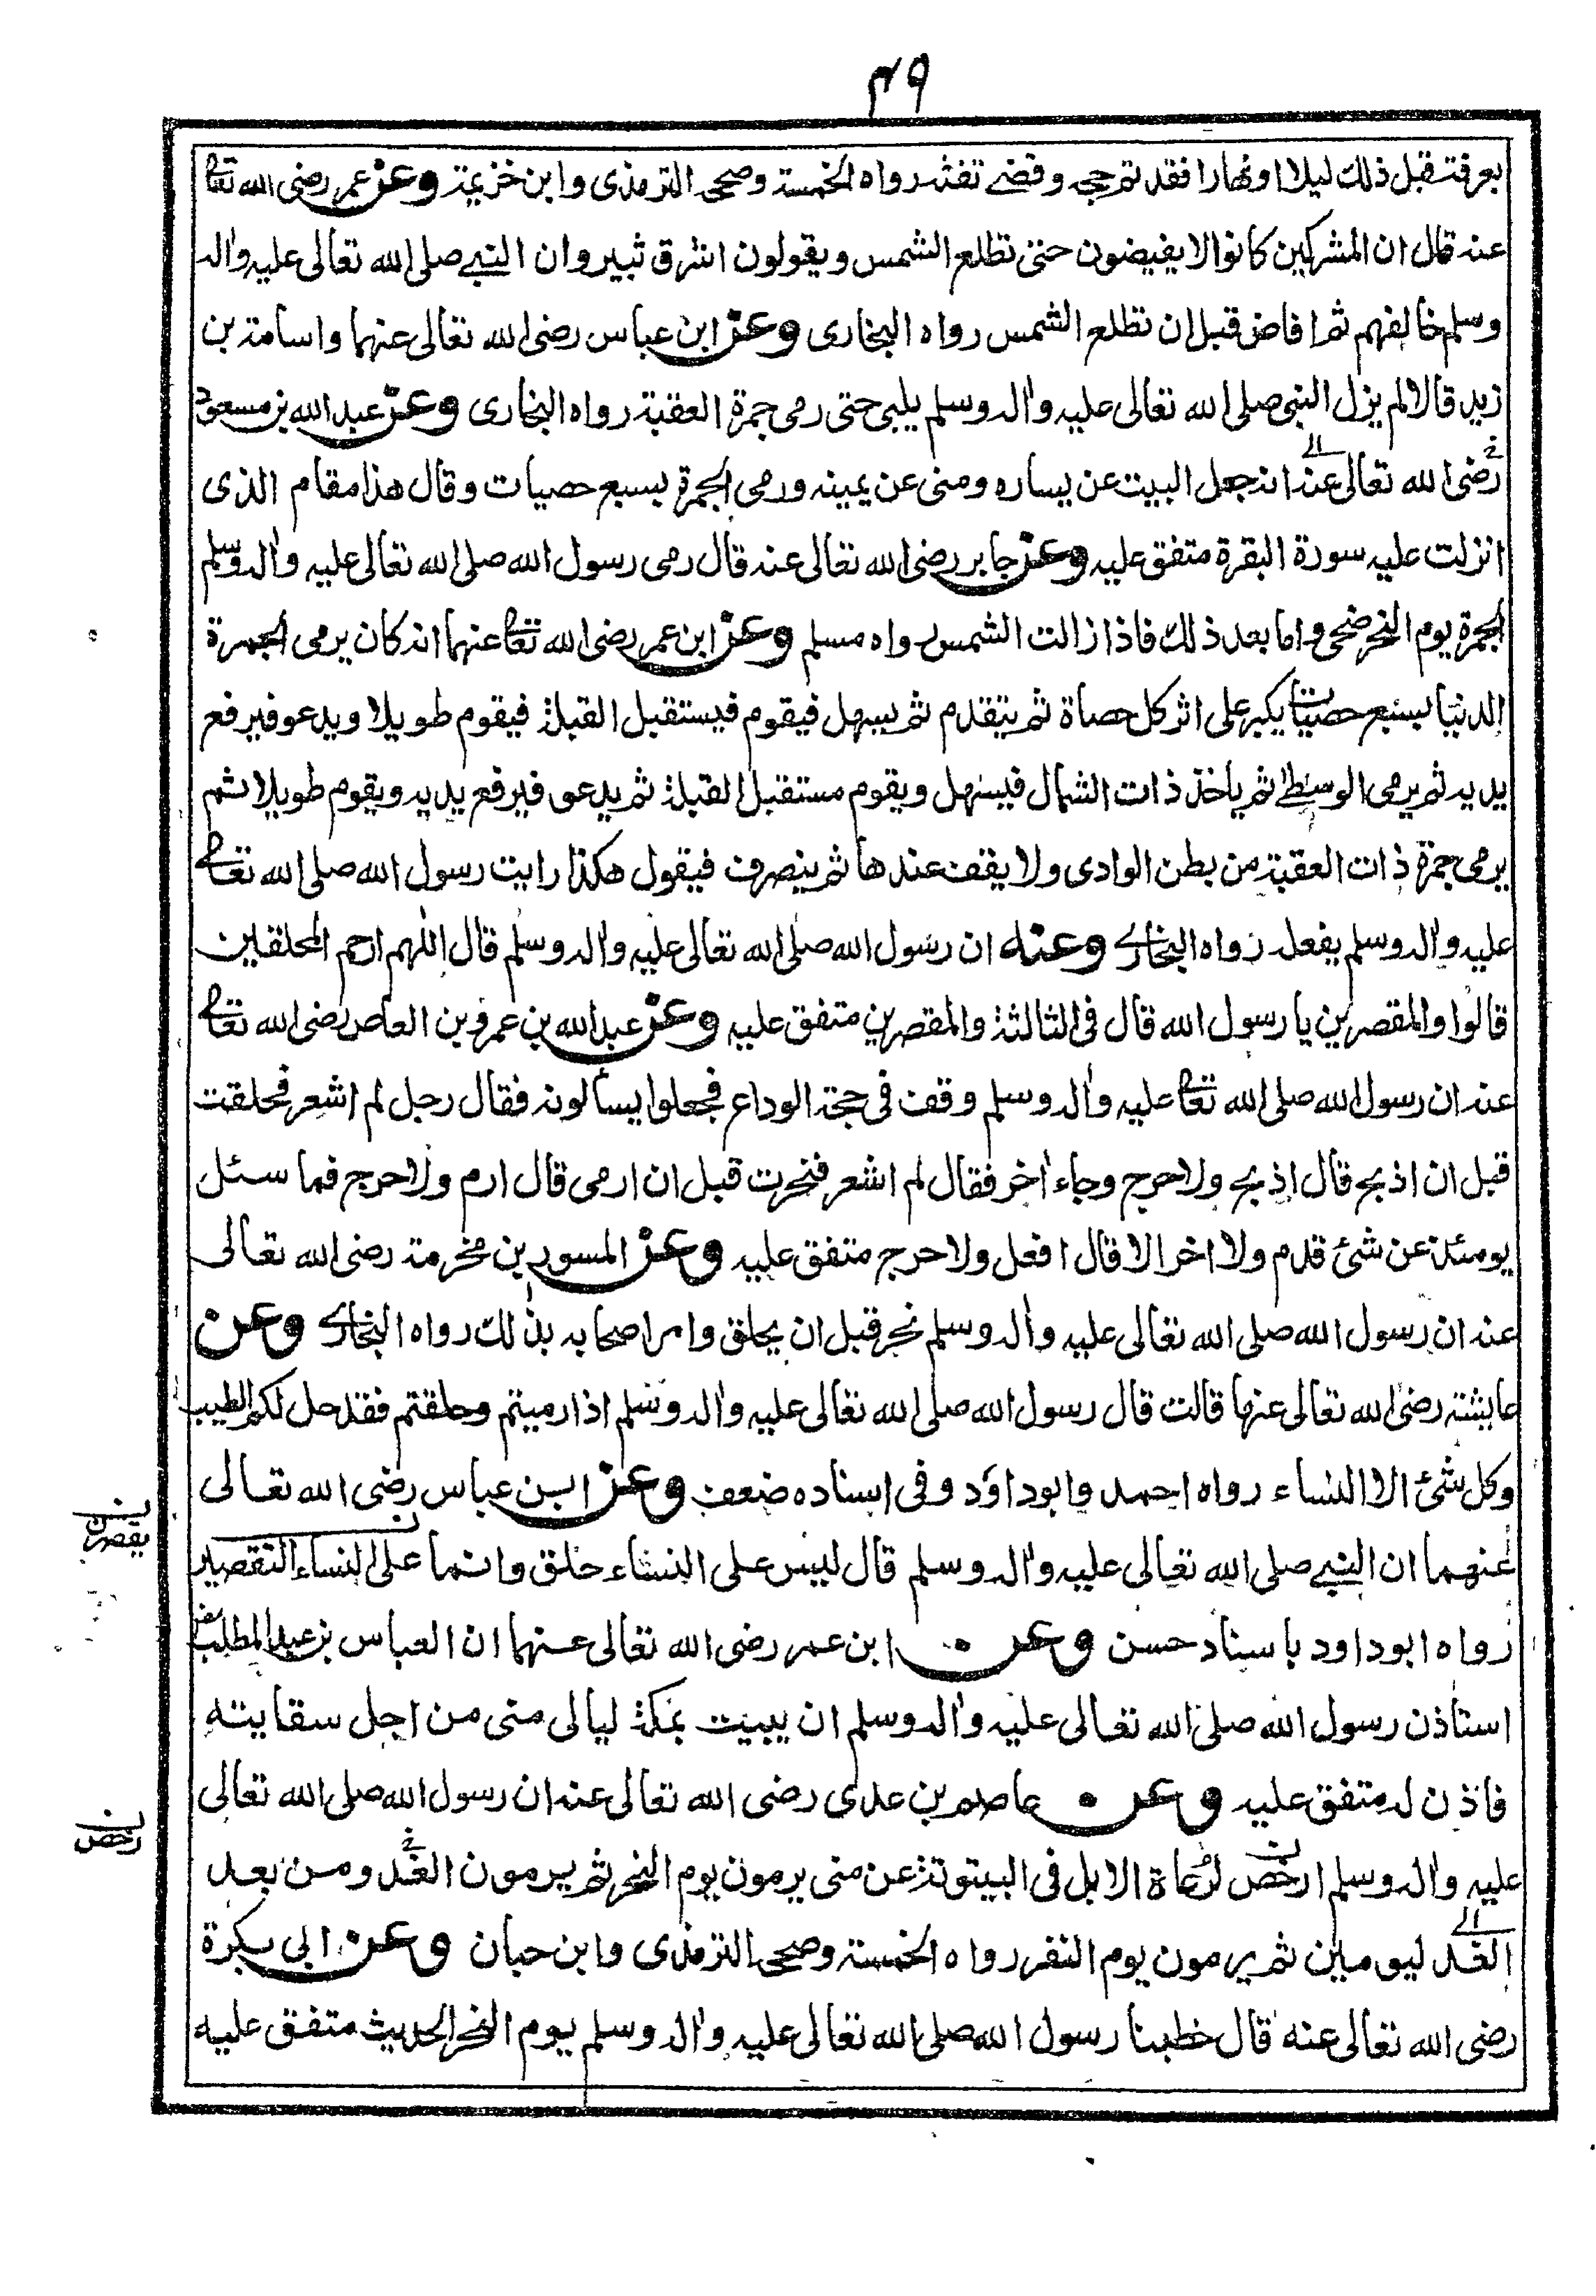 ٤٩
بعرفة قبل ذلك ليلا او نهارا فقد تم حجه وقضے تفثه رواه الخمسة وصححه الترمذى وابن خزيمة وعن عمر رضى الله تعالے
عنه قال ان المشركين كانوا لا يفيضون حتى تطلع الشمس ويقولون اشرق ثبير وان النبے صلى الله تعالى عليه واٰله
وسلم خالفهم ثم افاض قبل ان تطلع الشمس رواه البخارى وعن ابن عباس رضى الله تعالى عنهما واسامة بن
زيد قالا لم يزل النبى صلى الله تعالى عليه واٰله وسلم يلبى حتى رمى جمرة العقبة رواه البخارى وعن عبد الله بن مسعود
رضى الله تعالى عنه انه جعل البيت عن يساره ومنى عن يمينه ورمى الجمرة بسبع حصيات وقال هذا مقام الذى
انزلت عليه سورة البقرة متفق عليه وعن جابر رضى الله تعالى عنه قال رمى رسول الله صلى الله تعالى عليه واٰله وسلم
الجمرة يوم النحر ضحى واما بعد ذلك فاذا زالت الشمس رواه مسلم وعن ابن عمر رضى الله تعالے عنهما انه كان يرمى الجمرة
الدنيا بسبع حصيات يكبر على اثر كل حصاة ثم يتقدم ثم يسهل فيقوم فيستقبل القبلة فيقوم طويلا ويدعو فيرفع
يديه ثم يرمى الوسطے ثم ياخذ ذات الشمال فيسهل ويقوم مستقبل القبلة ثم يدعو فيرفع يديه ويقوم طويلا ثم
يرمى جمرة ذات العقبة من بطن الوادى ولا يقف عندها ثم ينصرف فيقول هكذا رايت رسول الله صلى الله تعالے
عليه واٰله وسلم يفعله رواه البخارے وعنه ان رسول الله صلى الله تعالى عليه واٰله وسلم قال اللهم ارحم المحلقين
قالوا والمقصرين يا رسول الله قال فى الثالثة والمقصرين متفق عليه وعن عبد الله بن عمرو بن العاص رضى الله تعالے
عنه ان رسول الله صلى الله تعالے عليه واٰله وسلم وقف فى حجة الوداع فجعلوا يسألونه فقال رجل لم اشعر فحلقت
قبل ان اذبح قال اذبح ولا حرج وجاء اٰخر فقال لم اشعر فنحرت قبل ان ارمى قال ارم ولا حرج فما سئل
يومئذ عن شئ قدم ولا اخر الا قال افعل ولا حرج متفق عليه وعن المسور بن مخرمة رضى الله تعالى
عنه ان رسول الله صلى الله تعالى عليه واٰله وسلم نحر قبل ان يحلق وامر اصحابه بذلك رواه البخارے وعن
عايشة رضى الله تعالى عنها قالت قال رسول الله صلى الله تعالى عليه واٰله وسلم اذا رميتم وحلقتم فقد حل لكم الطيب
وكل شئ الا النساء رواه احمد وابو داود وفى اسناده ضعف وعن ابن عباس رضى الله تعالى
عنهما ان النبے صلى الله تعالى عليه واٰله وسلم قال ليس على النساء حلق وانما على النساء التقصير
يقصرن
رواه ابو داود باسناد حسن وعن ابن عمر رضى الله تعالى عنهما ان العباس بن عبد المطلب
استاذن رسول الله صلى الله تعالى عليه واٰله وسلم ان يبيت بمكة ليالى منى من اجل سقايته
فاذن له متفق عليه وعن عاصم بن عدى رضى الله تعالى عنه ان رسول الله صلى الله تعالى
رخص
عليه واٰله وسلم ارخص لرعاة الابل فى البيتوتة عن منى يرمون يوم النحر ثم يرمون الغد ومن بعد
الغد ليومين ثم يرمون يوم النفر رواه الخمسة وصححه الترمذى وابن حبان وعن ابى بكرة
رضى الله تعالى عنه قال خطبنا رسول الله صلى الله تعالى عليه واٰله وسلم يوم النحر الحديث متفق عليه